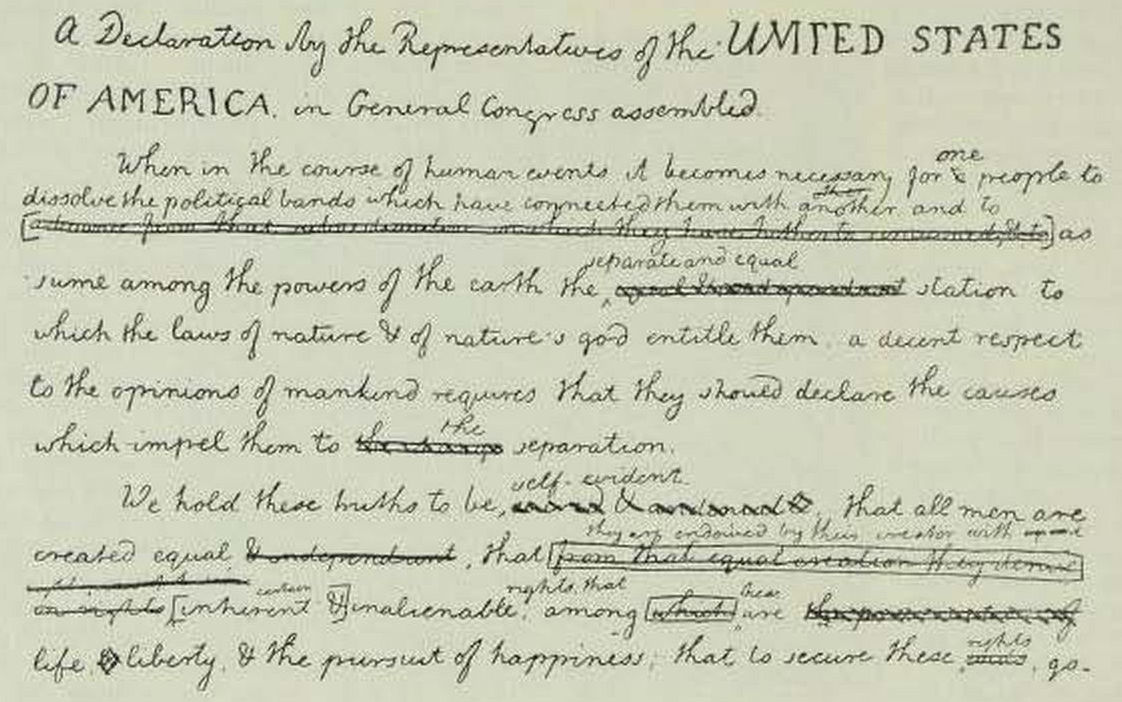 A Declaration by the Representatives of the UNITED STATES
OF AMERICA. in General Congress assembled.
When in the course of human events it becomes necessary for one people to
dissolve the political bands which have connected them with another and to
from that subordination in which they have hitherto remained, & to as
separate and equal
sume among the powers of the earth the station to
which the laws of nature & of nature's god entitle them, a decent respect
to the opinions of mankind requires that they should declare the causes
the
which impel them to the change separation.
self-evident.
We hold these truths to be, that all men are
they are endowed by their creator with
created equal & independant, that from that equal creation they derive
certain rights; that these
in rights inherent & inalienable, among which are
rights
life, & liberty, & the pursuit of happiness; that to secure these ends, go-